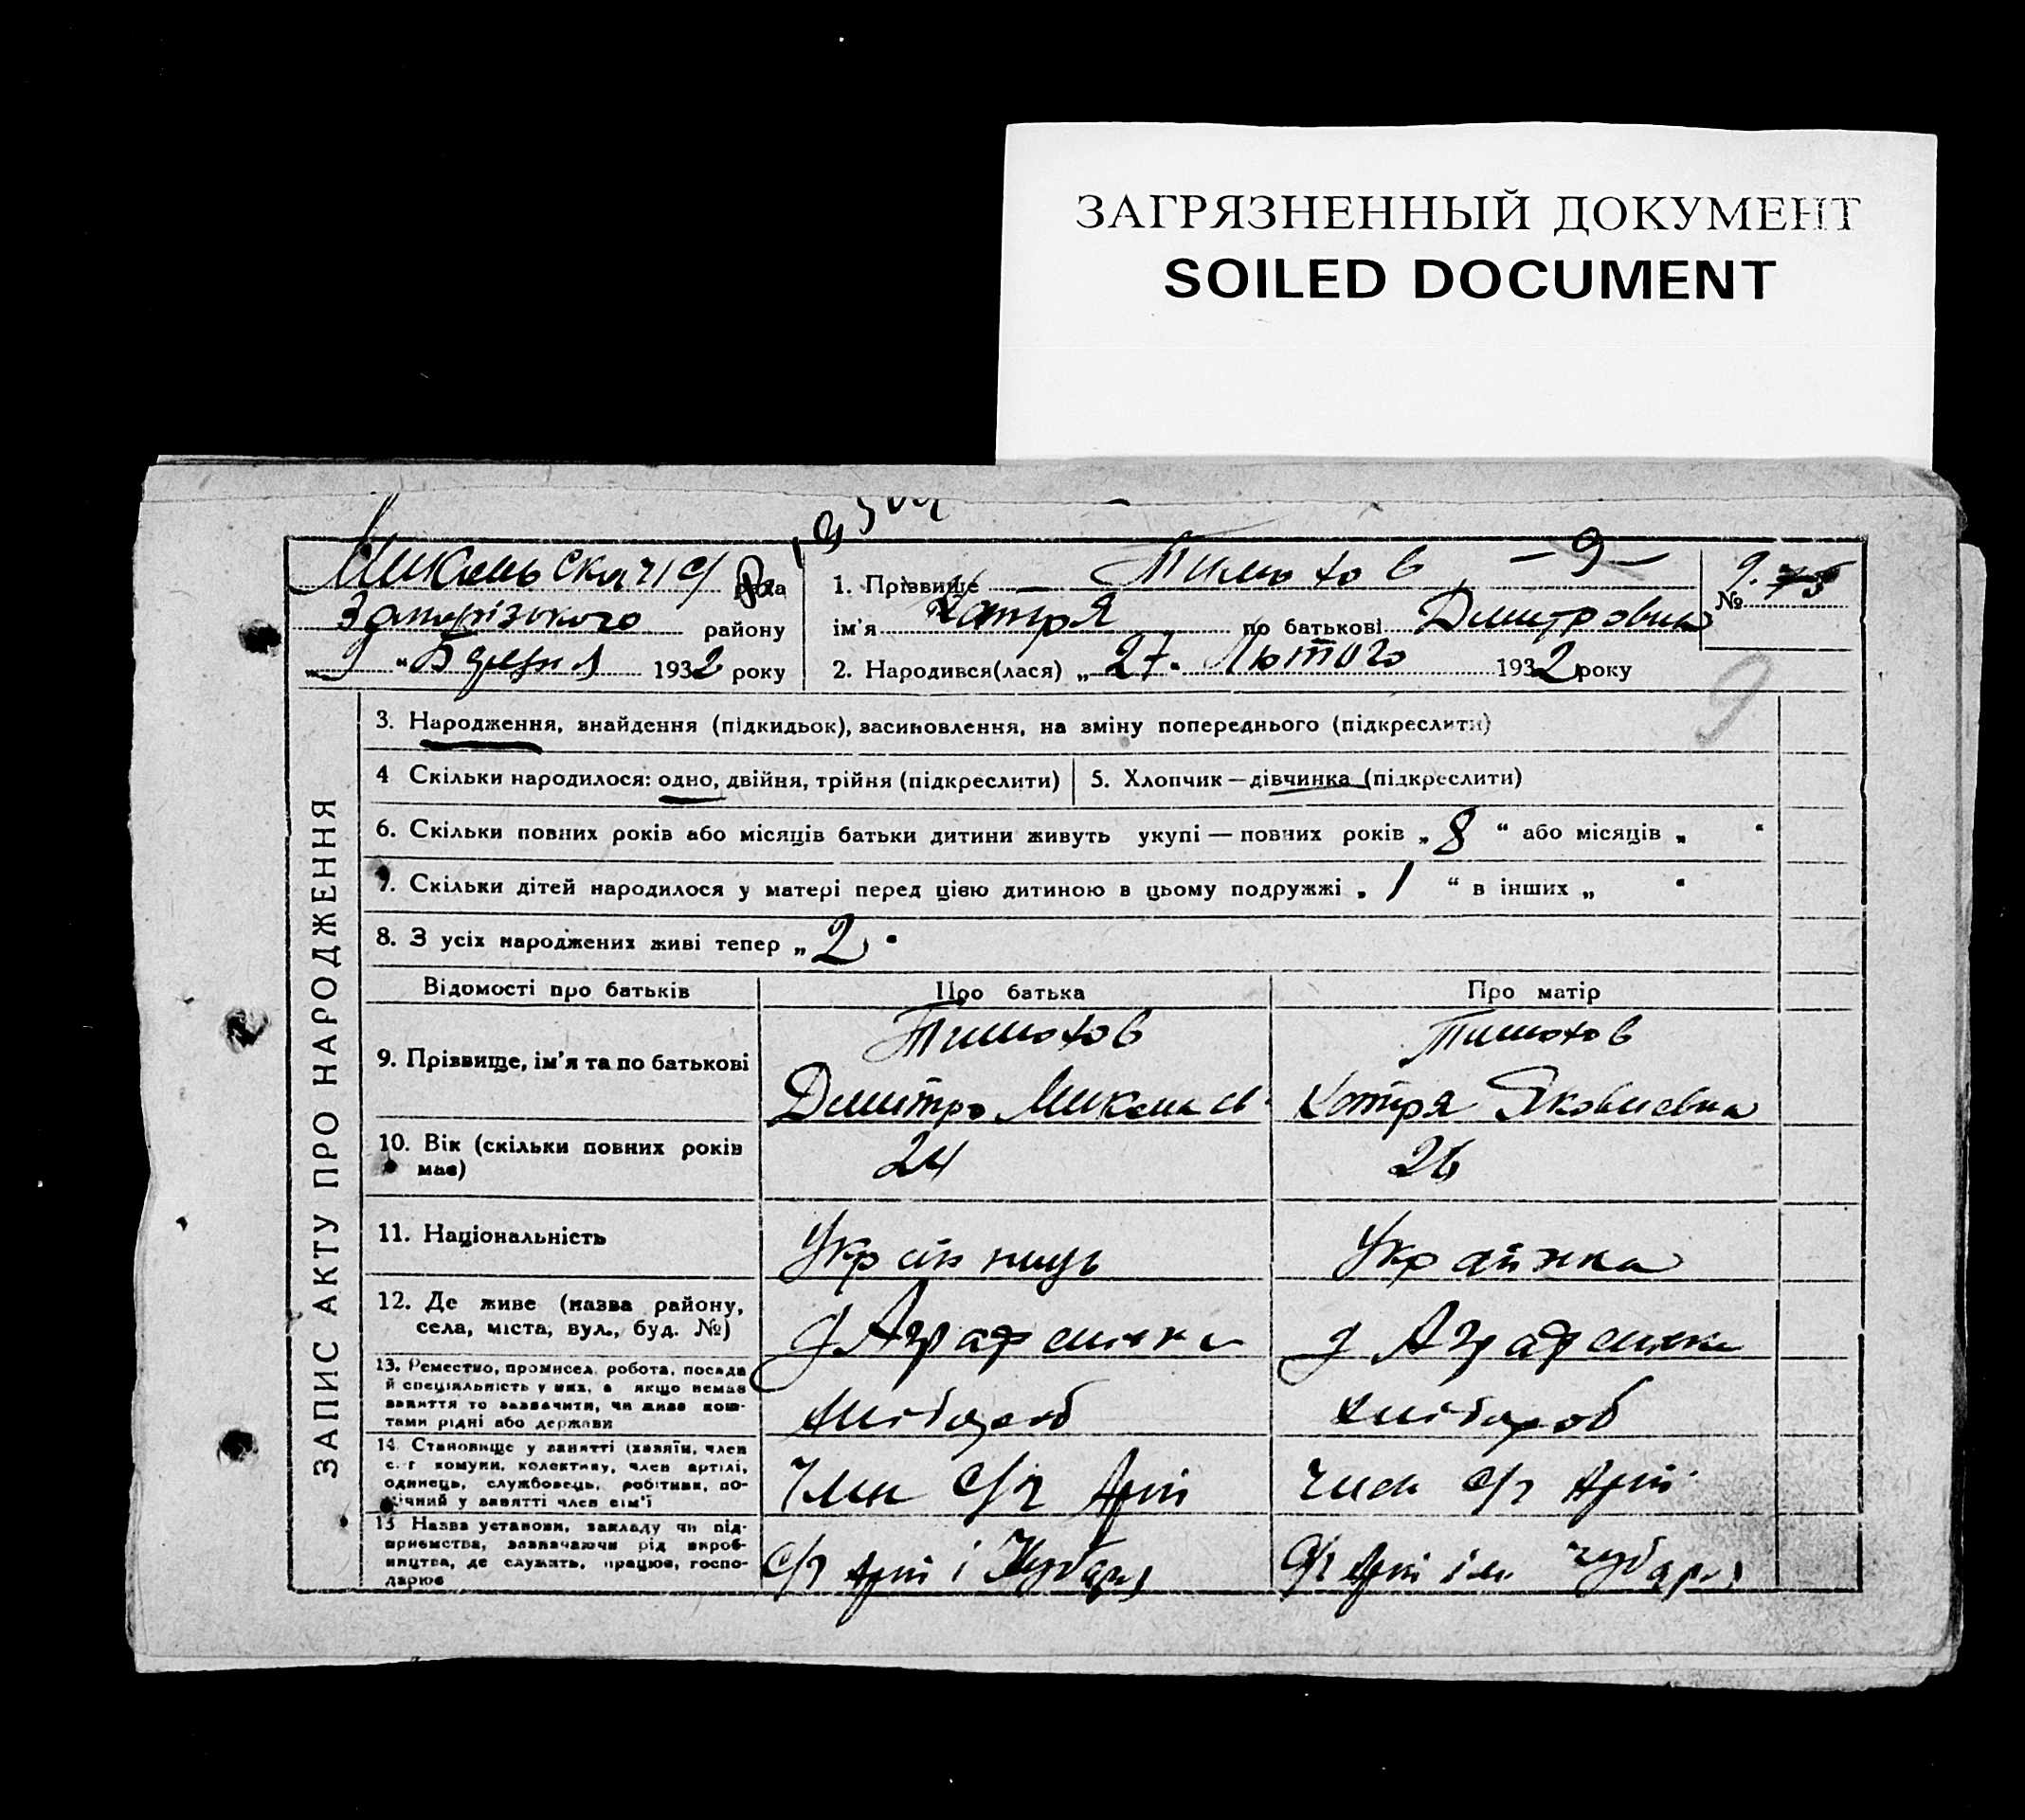 ЗАГРЯЗНЕННЫЙ ДОКУМЕНТ
SOILED DOCUMENT
рада
Запорізького району
„9“ Березня 1932 року
1. Прізвище Тимохов, — 9 —
№ 9. 75
ім'я Катря по батькові Дмитровна
2. Народився(лася) „27. Лютого 1932 року
9
ЗАПИС АКТУ ПРО НАРОДЖЕННЯ
3. Народження, знайдення (підкидьок), засиновлення, на зміну попереднього (підкреслити)
4 Скільки народилося: одно, двійня, трійня (підкреслити)
5. Хлопчик — дівчинка (підкреслити)
6. Скільки повних років або місяців батьки дитини живуть укупі — повних років „ 8 “ або місяців „ “
7. Скільки дітей народилося у матері перед цією дитиною в цьому подружжі „ 1 “ в інших „ “
8. З усіх народжених живі тепер „ 2 “
Відомості про батьків
Про батька
Про матір
9. Прізвище, ім'я та по батькові
Тимохов
Дмитро Микол
Тимохов
Катря Яковлевна
10. Вік (скільки повних років
має)
24
26
11. Національність
Українець
Українка
12. Де живе (назва району,
села, міста, вул., буд. №)
13. Ремество, промисел, робота, посада
й спеціяльність у них, а якщо немає
заняття то зазначити, чи живе кош-
тами рідні або держави
хлібороб
хлібороб
14. Становище у занятті (хазяїн, член
с.-г комуни, колективу, член артілі,
одинець, службовець, робітник, по-
мічний у занятті член сім'ї
Член с/г Арті
член с/г Арті
15 Назва установи, закладу чи під-
приємства, зазначаючи рід вироб-
ництва, де служить, працює, госпо-
дарює
с/г Арті і Чубаря
с/г Арті ім. Чубаря